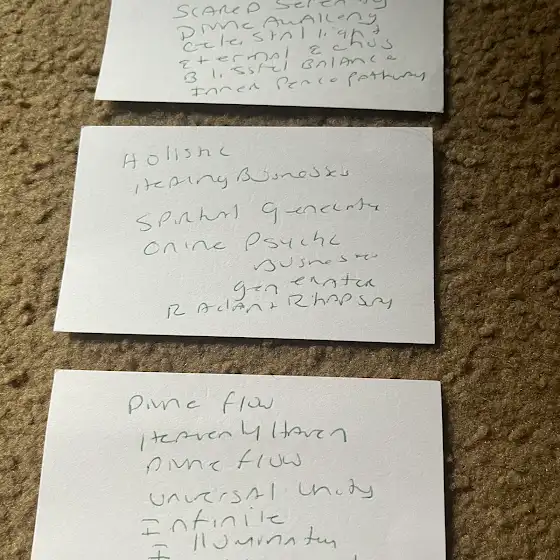 SCARED Serenity
Divine Awakeny
Celestial light
Eternal Echos
Blissful Balance
Inner Peace Pathway
Holistic
Healing Businesses
Spiritual
Online Psychic
Business
generator
Radiant Rhapsody
Divine flow
Heavenly Haven
Divine flow
Universal Unity
Infinite
Illuminaten